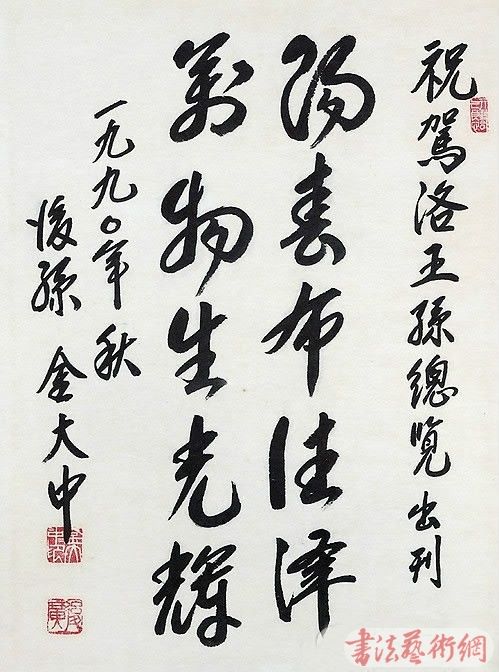 祝駕洛王孫總覧出刊
陽春布德澤
萬物生光輝
一九九〇年 秋
後孫 金大中
書法藝術網